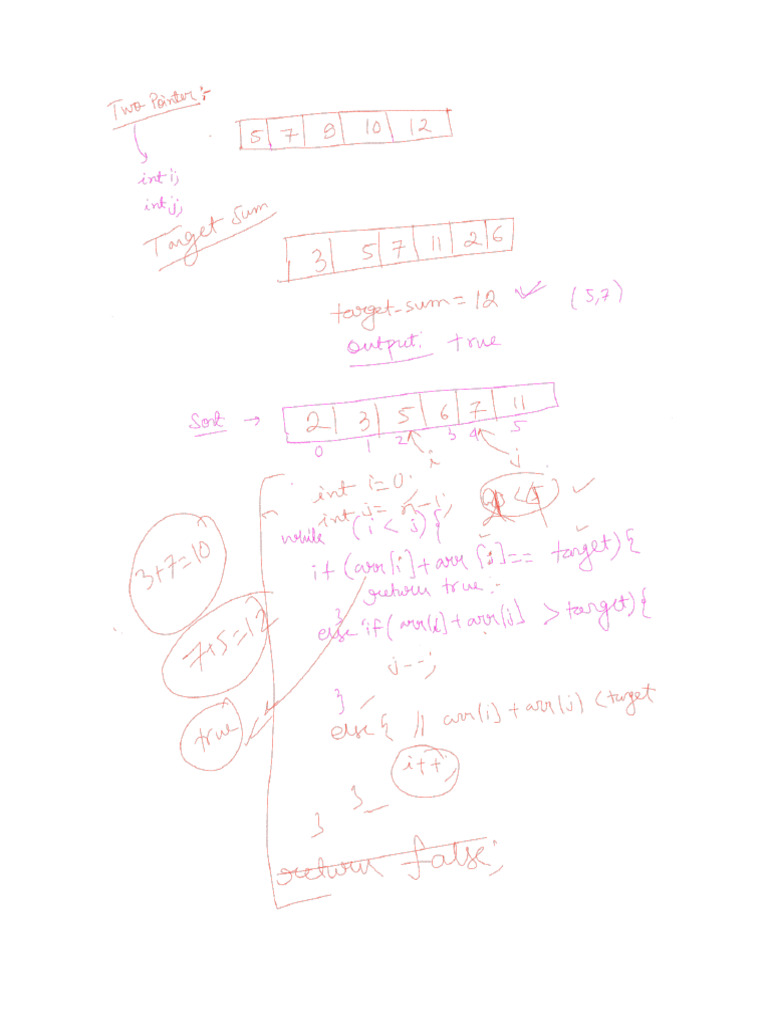 Two Pointer:-
5 7 9 10 12
int i;
int j;
Target Sum
3 5 7 11 2 6
target-sum = 12 (5,7)
output: true
Sort → 2 3 5 6 7 11
0 1 2 3 4 5
i j
int i=0;
int j= n-1;
while (i < j) {
if (arr[i]+arr[j]== target) {
return true;
3+7=10
}
else if (arr[i]+arr[j] > target) {
7+5=12
j--;
}
true
else { // arr[i]+arr[j] < target
i++;
}
}
return false;